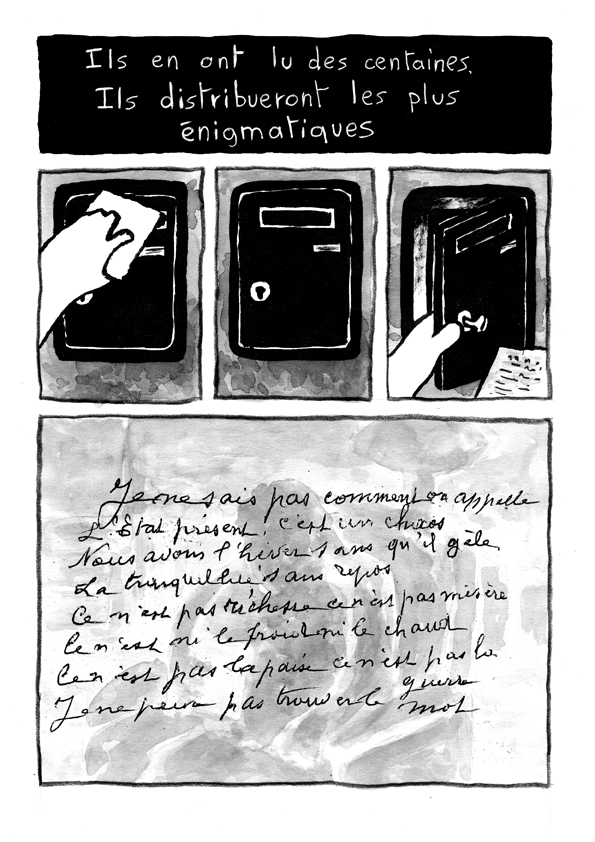 Ils en ont lu des centaines.
Ils distribueront les plus
énigmatiques
Je ne sais pas comment on appelle
L'État présent, c'est un chaos
Nous avons l'hiver sans qu'il gèle
La tranquillité sans repos
Ce n'est pas richesse ce n'est pas misère
Ce n'est ni le froid ni le chaud
Ce n'est pas la paix ce n'est pas la
guerre
Je ne peux pas trouver le mot